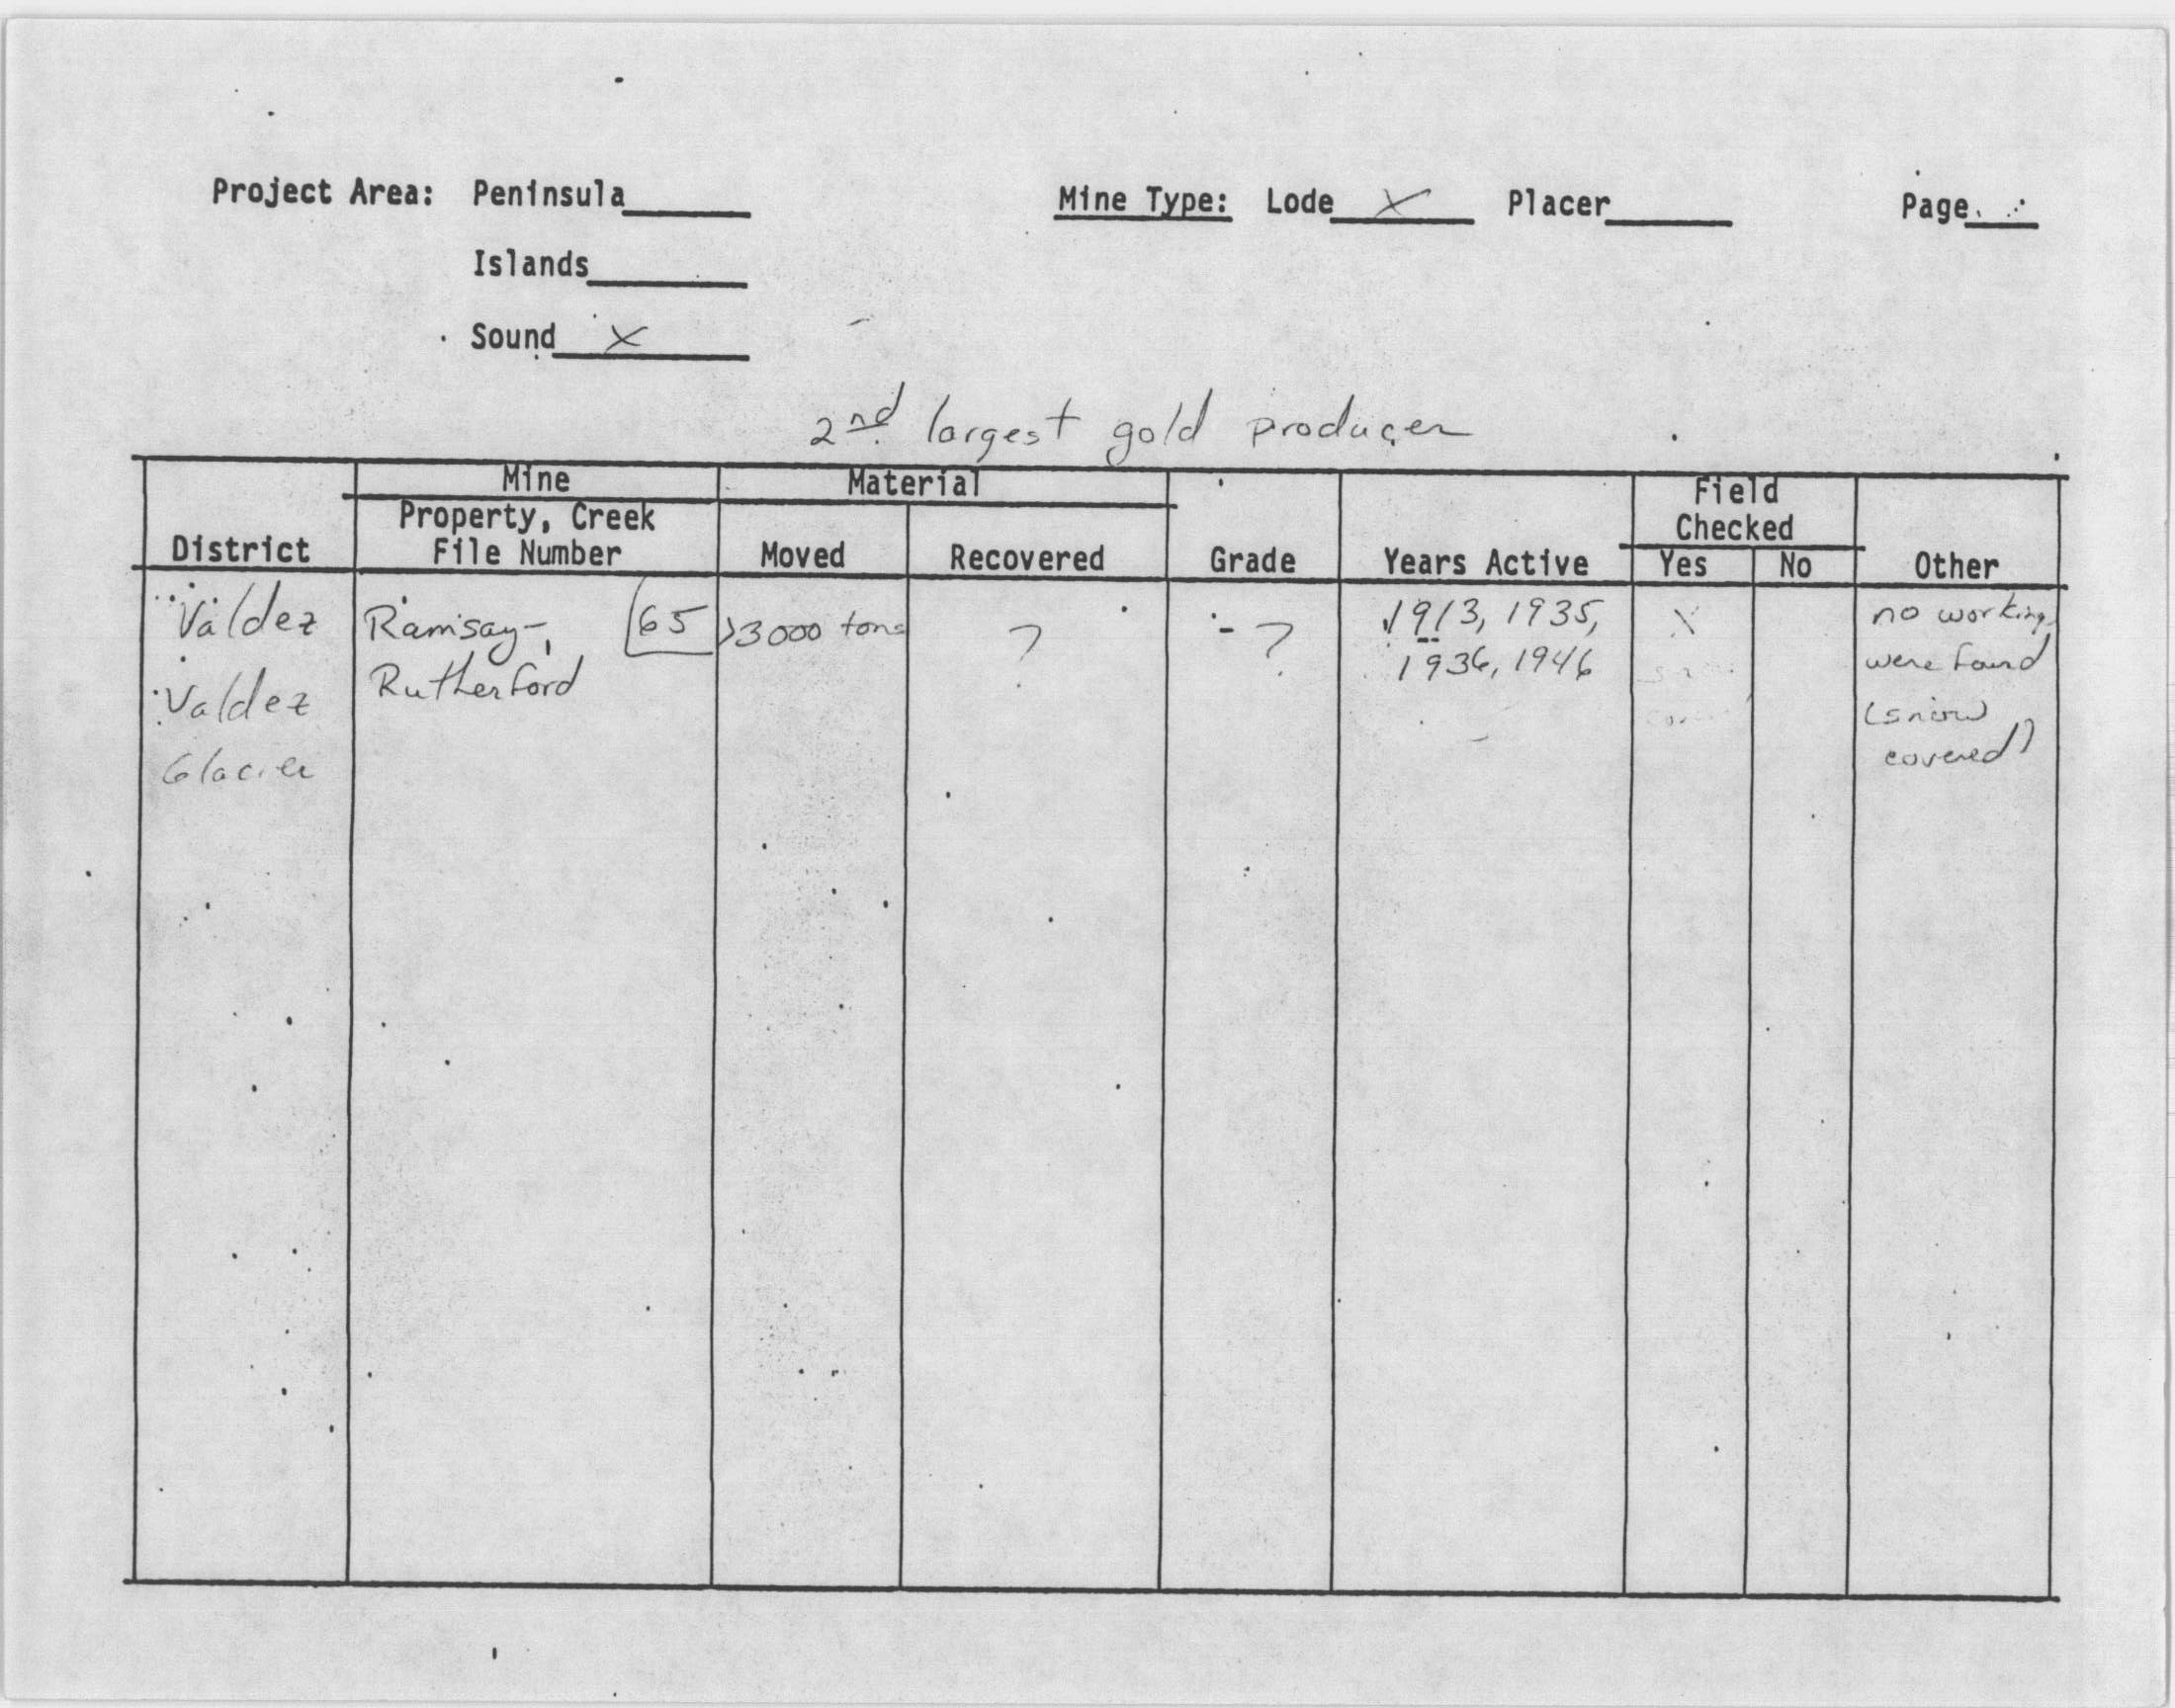 Project Area: Peninsula
Mine Type: Lode X Placer
Page
Islands
Sound X
2nd largest gold producer
Mine
Material
Field
Property, Creek
Checked
District File Number Moved Recovered Grade Years Active Yes No Other
Valdez Ramsay- 65 >3000 tons ? - ? 1913, 1935, X no workings
Rutherford 1936, 1946 were found
Valdez (snow
Glacier covered)